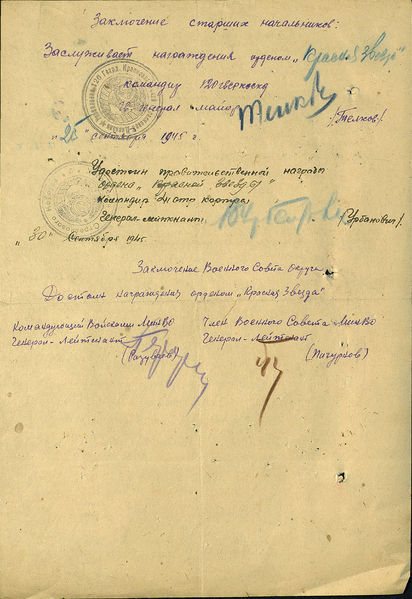 Заключение старших начальников:
Заслуживает награждения орденом „Красная Звезда"
командир 120 гвкскд
гв генерал майор
/Телков/.
"25" сентября 1945 г.
Удостоин правительственной награды
ордена „Красной Звезды"
командир стр корпуса
Генерал-лейтенант
/Урбанович/.
"30" сентября 1945г.
Заключение Военного Совета округа
Достоин награждения орденом „Красная Звезда"
Командующий Войсками МинВО
Генерал-Лейтенант
(Разуваев)
Член Военного Совета МинВО
Генерал-Лейтенант
(Пигурнов)